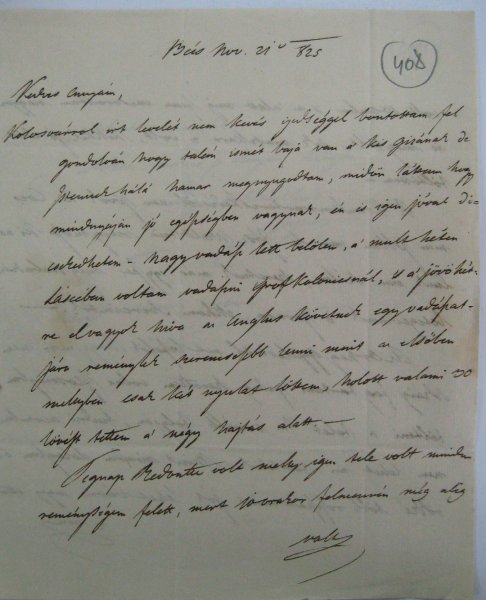 Bécs Nov. 21ᵘ 825
408
Kedves anyám,
Kolosvárról irt levelét nem kevés ijedséggel bontottam fel
gondolván hogy talán ismét baja van a' kis Gisának de
Istennek hálá hamar megnyugodtam, midőn láttam hogy
mindnyájan jó egésségben vagynak, én is igen jóval di=
csekedhetem - Nagy vadász lett belőlem, a' mult héten
voltam vadászni Grof Kolonicsnál, 's a' jövő hét-
re el vagyok híva az Anglus követnek egy vadásza-
jára reménylek szerencsésebb lenni mint az elsőben
melyben csak két nyulat lőttem, holott valami 30
lövést tettem a' négy hajtás alatt —
Tegnap Redoute volt mely igen tele volt minden
reménységem felett, mert órakor felmenvén még alig
valt